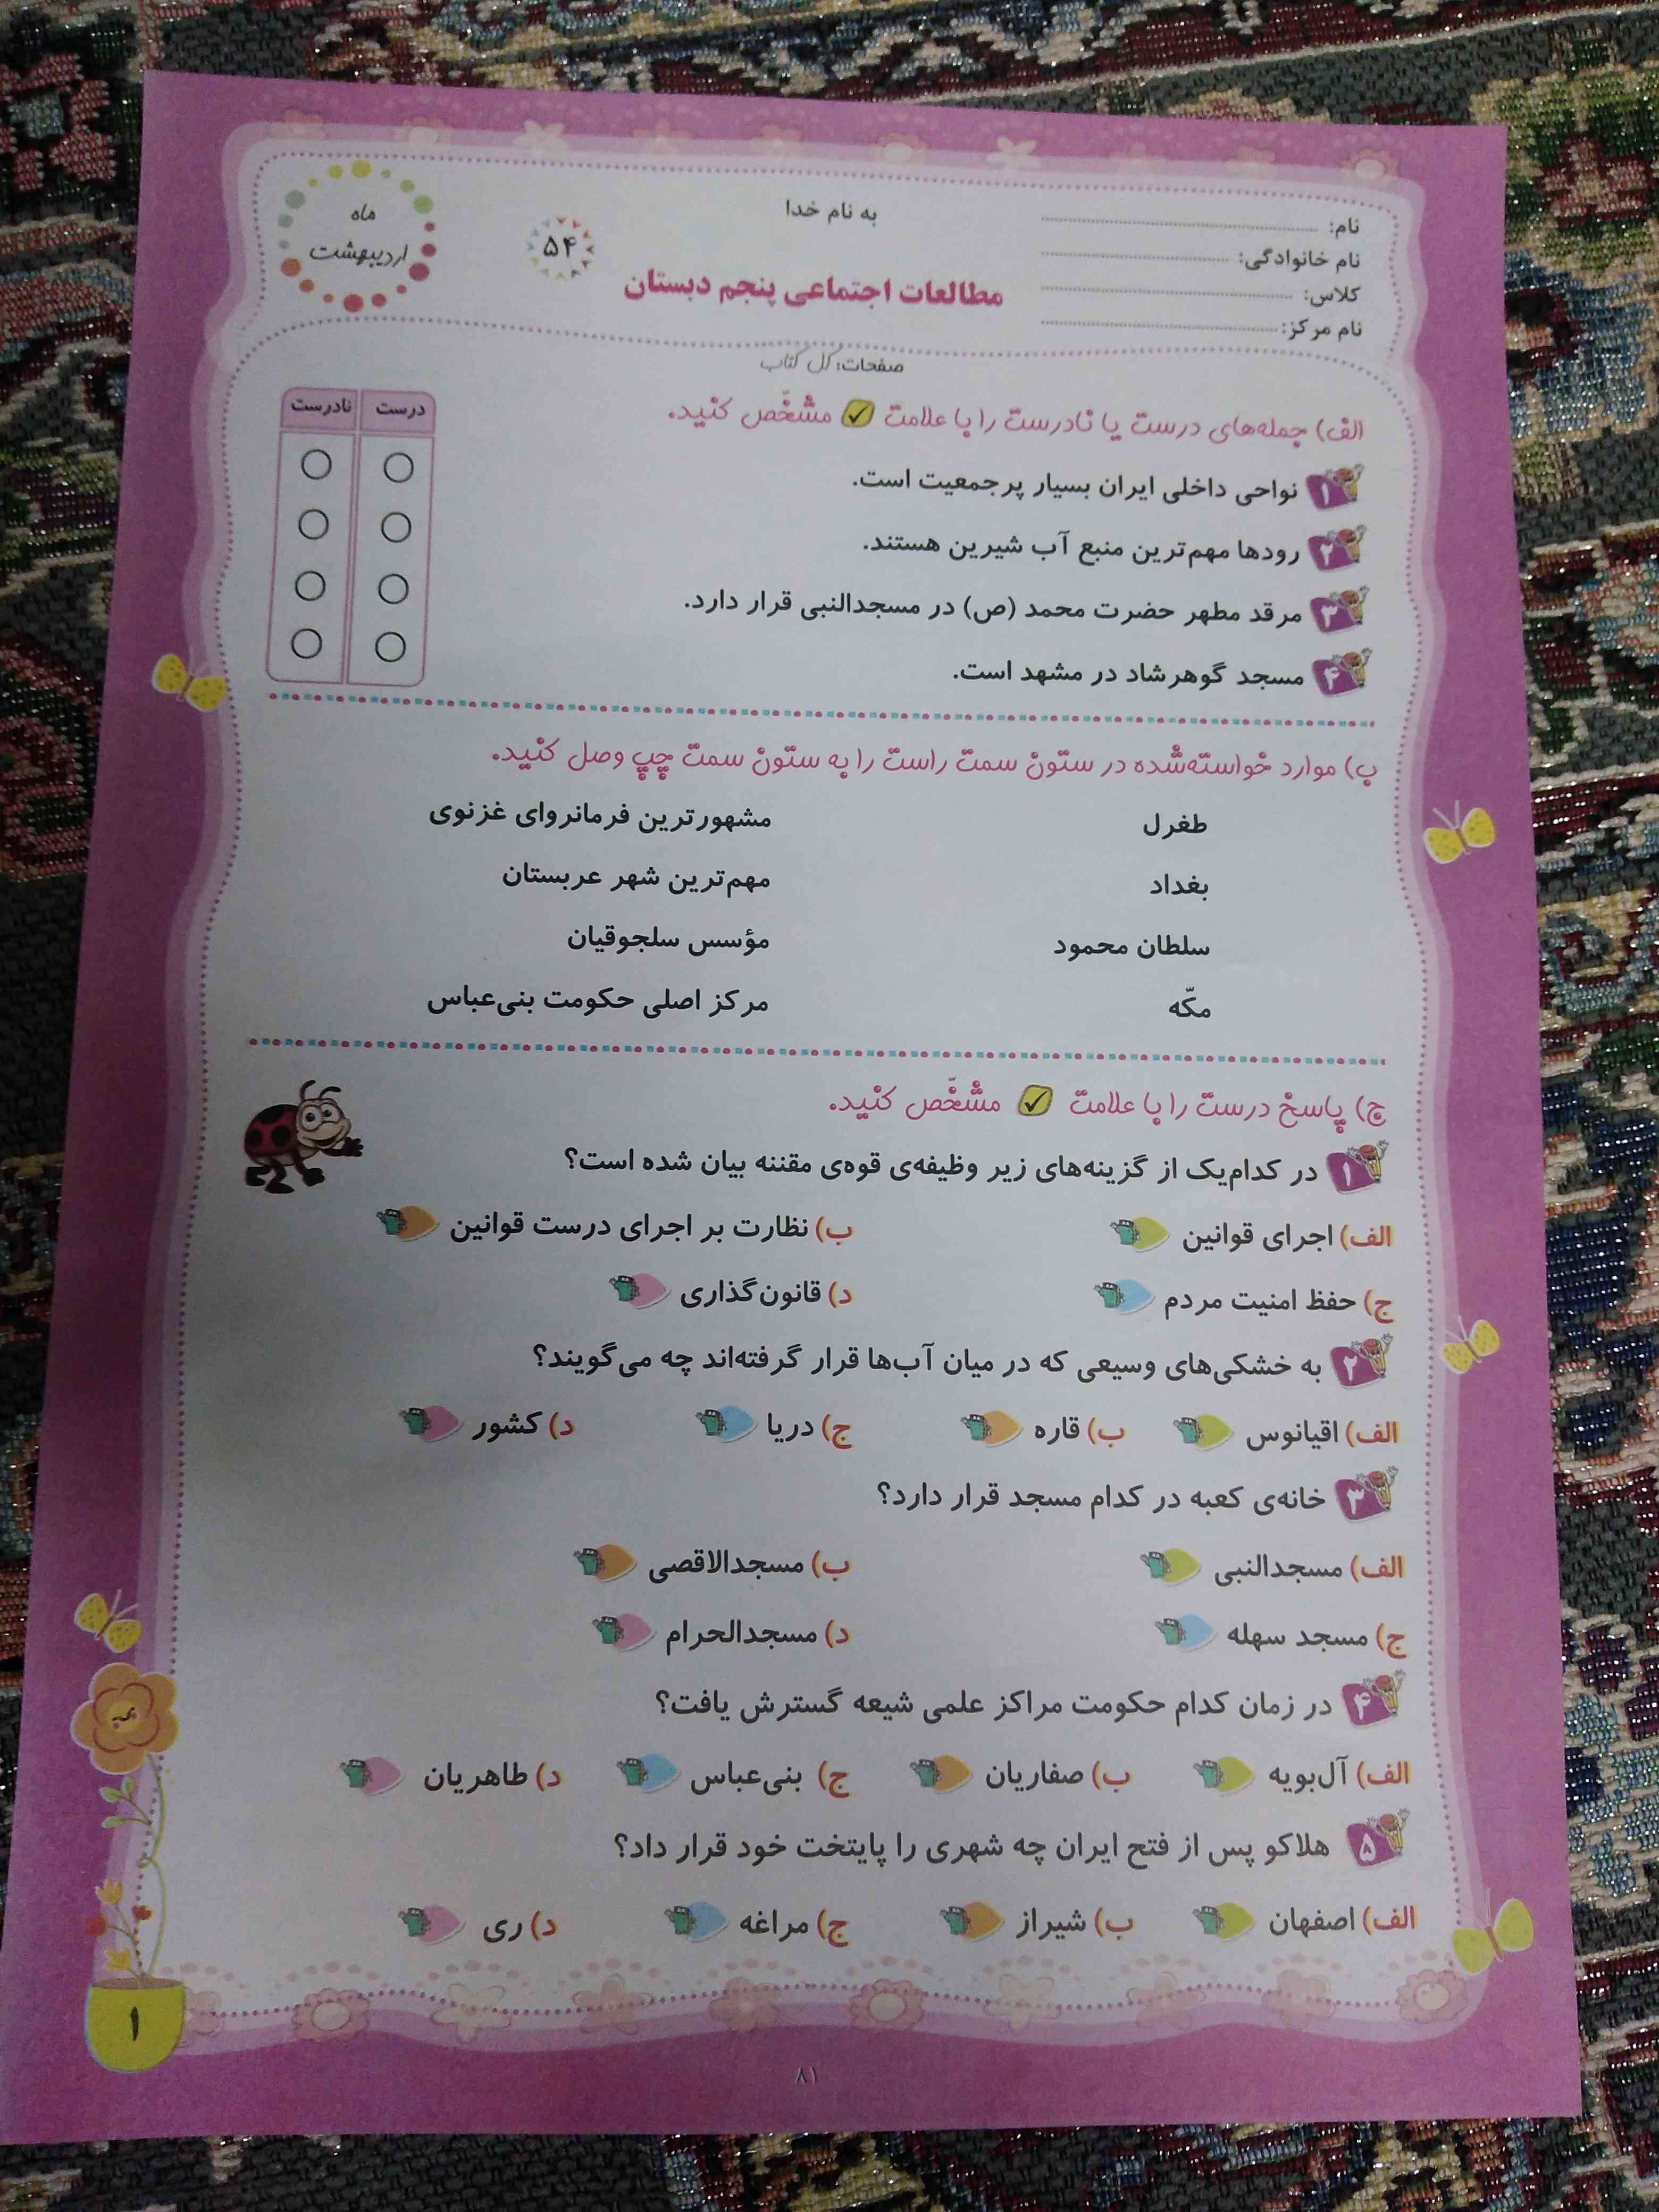 به نام خدا
نام:
نام خانوادگی:
کلاس:
نام مرکز:
۵۴
ماه
اردیبهشت
مطالعات اجتماعی پنجم دبستان
صفحات: کل کتاب
الف) جمله‌های درست یا نادرست را با علامت ✓ مشخّص کنید.
درست نادرست
۱ نواحی داخلی ایران بسیار پرجمعیت است.
۲ رودها مهم‌ترین منبع آب شیرین هستند.
۳ مرقد مطهر حضرت محمد (ص) در مسجدالنبی قرار دارد.
۴ مسجد گوهرشاد در مشهد است.
ب) موارد خواسته‌شده در ستون سمت راست را به ستون سمت چپ وصل کنید.
طغرل مشهورترین فرمانروای غزنوی
بغداد مهم‌ترین شهر عربستان
سلطان محمود مؤسس سلجوقیان
مکّه مرکز اصلی حکومت بنی‌عباس
ج) پاسخ درست را با علامت ✓ مشخّص کنید.
۱ در کدام‌یک از گزینه‌های زیر وظیفه‌ی قوه‌ی مقننه بیان شده است؟
الف) اجرای قوانین ب) نظارت بر اجرای درست قوانین
ج) حفظ امنیت مردم د) قانون‌گذاری
۲ به خشکی‌های وسیعی که در میان آب‌ها قرار گرفته‌اند چه می‌گویند؟
الف) اقیانوس ب) قاره ج) دریا د) کشور
۳ خانه‌ی کعبه در کدام مسجد قرار دارد؟
الف) مسجدالنبی ب) مسجدالاقصی
ج) مسجد سهله د) مسجدالحرام
۴ در زمان کدام حکومت مراکز علمی شیعه گسترش یافت؟
الف) آل‌بویه ب) صفاریان ج) بنی‌عباس د) طاهریان
۵ هلاکو پس از فتح ایران چه شهری را پایتخت خود قرار داد؟
الف) اصفهان ب) شیراز ج) مراغه د) ری
۱
۸۱